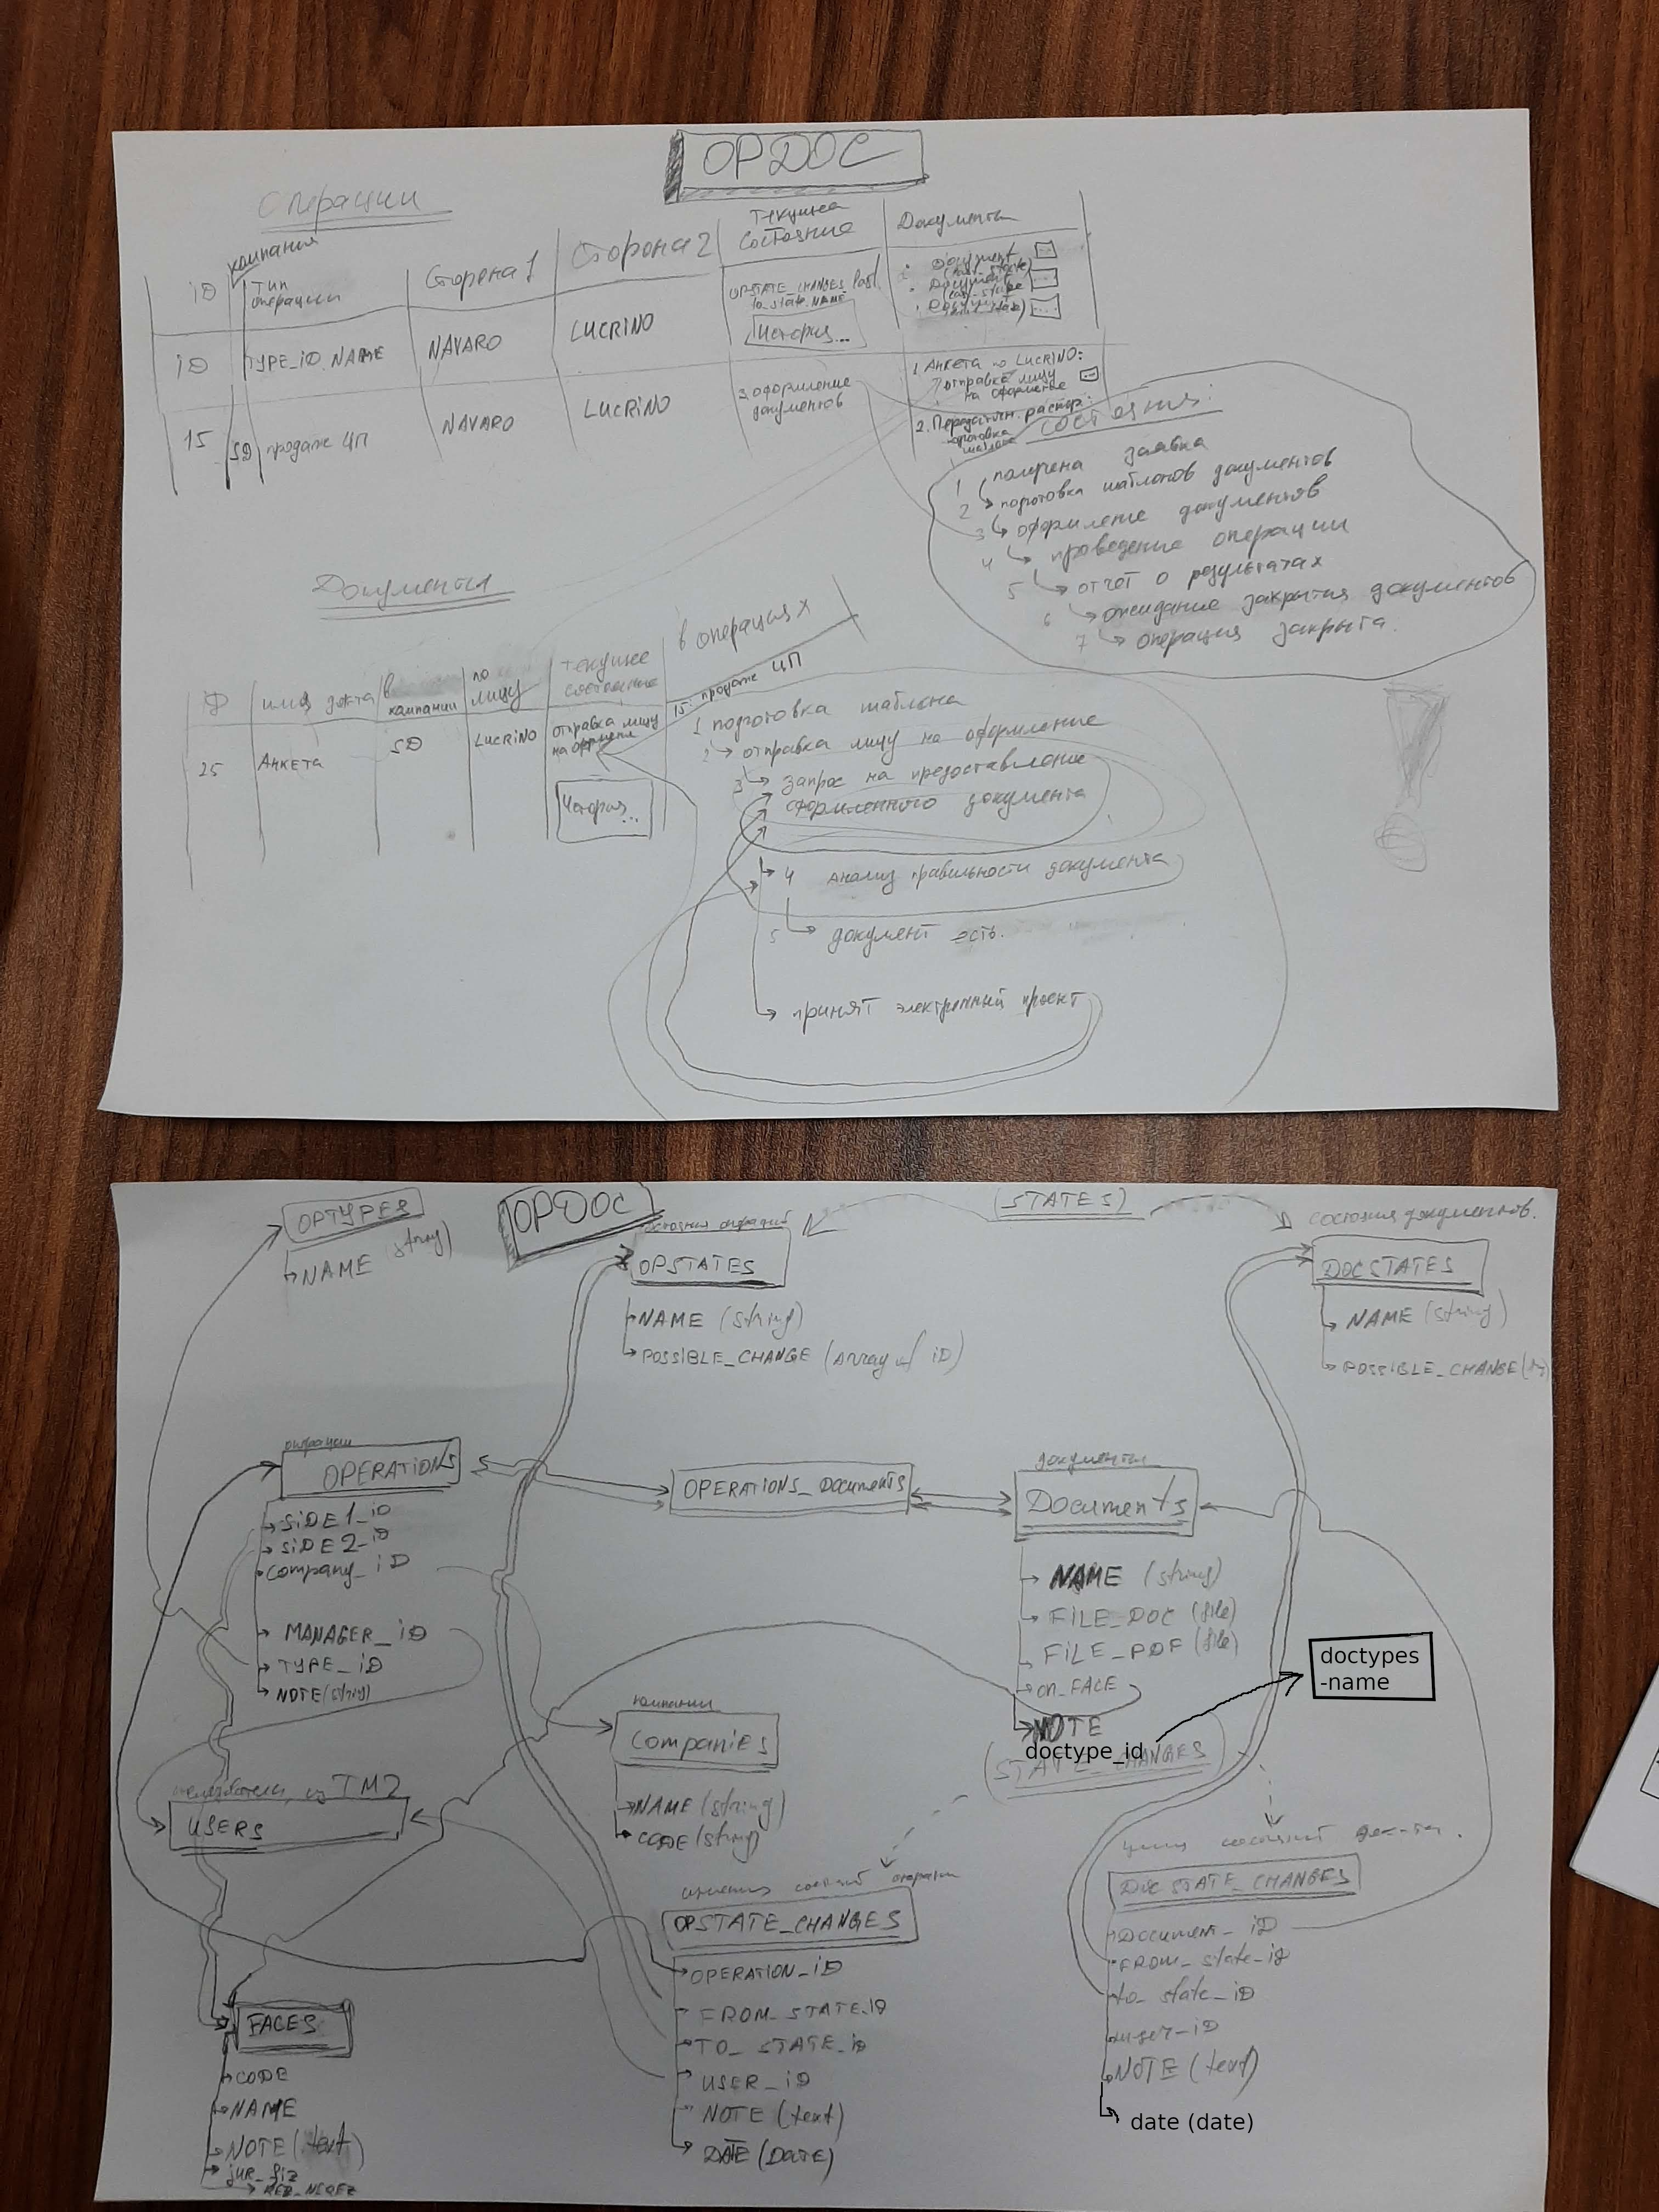 OPDOC
Операции
ID
компания
Тип
операции
Сторона 1
Сторона 2
Текущее
состояние
Документы
ID
TYPE_ID.NAME
NAVARO
LUCRINO
OPSTATE_CHANGES.last.
to_state.NAME
История...
Document
(last_state)
Document
(last_state)
Document
(last_state)
15
SD
продажа ЦП
NAVARO
LUCRINO
3. оформление
документов
1. Анкета по LUCRINO:
отправка лицу
на оформление
2. Передаточн. распор.:
подготовка
шаблона
состояния:
1 получена заявка
2 подготовка шаблонов документов
3 оформление документов
4 проведение операции
5 отчет о результатах
6 ожидание закрытия документов
7 операция закрыта.
Документы
ID
имя док-та
в
компании
по
лицу
текущее
состояние
в операциях
25
Анкета
SD
LUCRINO
отправка лицу
на оформлен
История...
15: продажа ЦП
1 подготовка шаблона
2 отправка лицу на оформление
3 запрос на предоставление
оформленного документа
4 анализ правильности документа
5 документ есть.
принят электронный проект
OPTYPES
NAME (string)
OPDOC
(STATES)
состояния операций
OPSTATES
NAME (string)
POSSIBLE_CHANGE (array of ID)
состояния документов.
DOCSTATES
NAME (string)
POSSIBLE_CHANGE
операции
OPERATIONS
SIDE1_ID
SIDE2_ID
Company_ID
MANAGER_ID
TYPE_ID
NOTE (string)
OPERATIONS_Documents
документы
Documents
NAME (string)
FILE_DOC (file)
FILE_PDF (file)
on_FACE
NOTE
doctype_id
doctypes
-name
(STATE_CHANGES)
компании
Companies
NAME (string)
CODE (string)
пользователи из TM2
USERS
OPSTATE_CHANGES
OPERATION_ID
FROM_STATE_ID
TO_STATE_ID
USER_ID
NOTE (text)
DATE (DATE)
DOCSTATE_CHANGES
Document_ID
FROM_state_id
to_state_ID
user_ID
NOTE (text)
date (date)
FACES
CODE
NAME
NOTE (text)
jur_fiz
REZ_NEREZ